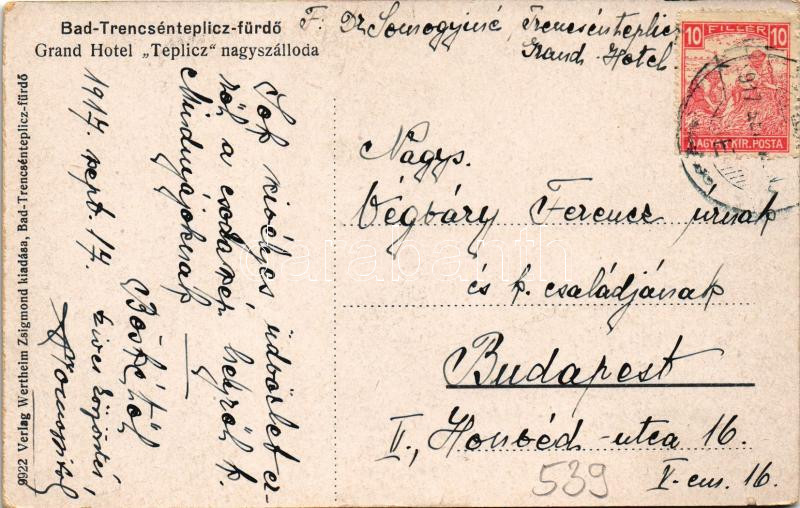 Bad-Trencsénteplicz-fürdő
Grand Hotel „Teplicz" nagyszálloda
F. Dr Somogyiné, Trencsénteplicz
Grand Hotel.
10 FILLÉR 10
MAGYAR KIR. POSTA
Nagys.
Végváry Ferencz urnak
és k. családjának
Budapest
V., Honvéd-utca 16.
V-em. 16.
539
1917. sept. 17.
Sok szivélyes üdvözlet er-
ről a csodaszép helyről k.
Mindnyájoknak
Böskétől
9922 Verlag Wertheim Zsigmond kiadása, Bad-Trencsénteplicz-fürdő